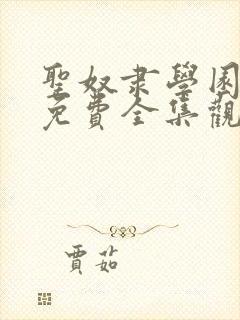 聖奴隶學園
免費全集觀
賈茹